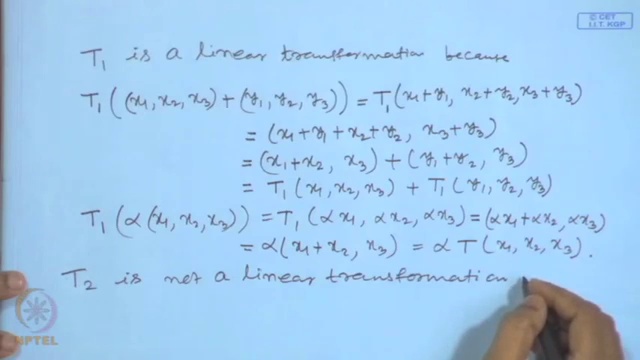 © CET
I.I.T. KGP
T₁ is a linear transformation because
T₁((x₁, x₂, x₃) + (y₁, y₂, y₃)) = T₁(x₁+y₁, x₂+y₂, x₃+y₃)
= (x₁+y₁+x₂+y₂, x₃+y₃)
= (x₁+x₂, x₃) + (y₁+y₂, y₃)
= T₁(x₁, x₂, x₃) + T₁(y₁, y₂, y₃)
T₁(α(x₁, x₂, x₃)) = T₁(αx₁, αx₂, αx₃) = (αx₁+αx₂, αx₃)
= α(x₁+x₂, x₃) = α T(x₁, x₂, x₃).
T₂ is not a linear transformation
NPTEL